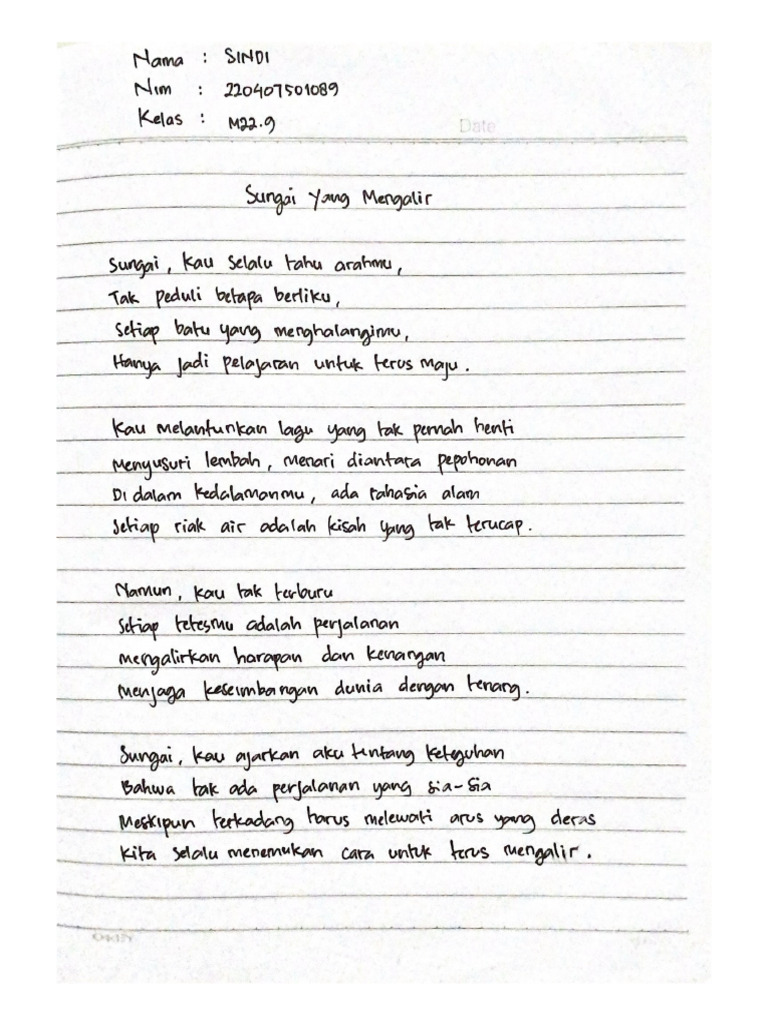 Nama : SINDI
Nim : 220407501089
Kelas : M22.9
Date
Sungai Yang Mengalir
Sungai, kau selalu tahu arahmu,
Tak peduli betapa berliku,
Setiap batu yang menghalangimu,
Hanya jadi pelajaran untuk terus maju.
Kau melantunkan lagu yang tak pernah henti
Menyusuri lembah, menari diantara pepohonan
Di dalam kedalamanmu, ada rahasia alam
Setiap riak air adalah kisah yang tak terucap.
Namun, kau tak terburu
Setiap tetesmu adalah perjalanan
Mengalirkan harapan dan kenangan
Menjaga keseimbangan dunia dengan tenang.
Sungai, kau ajarkan aku tentang keteguhan
Bahwa tak ada perjalanan yang sia-sia
Meskipun terkadang harus melewati arus yang deras
Kita selalu menemukan cara untuk terus mengalir.